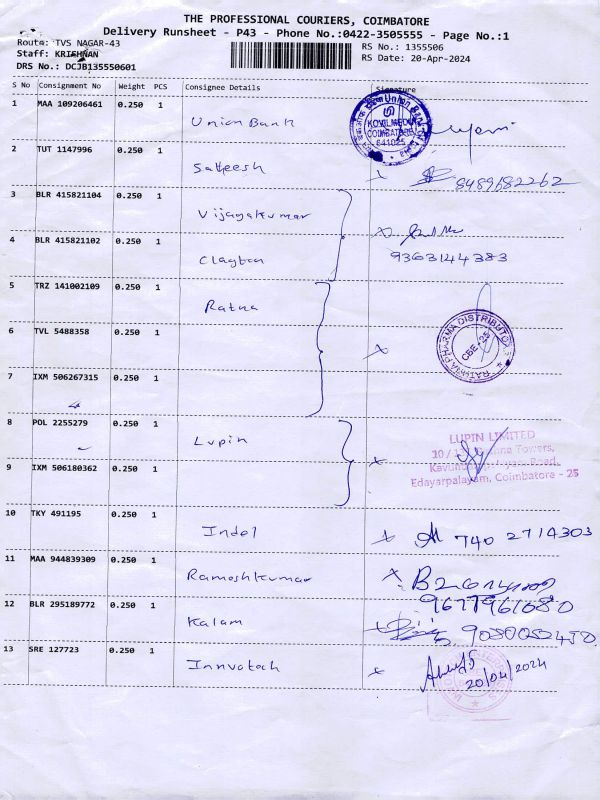 THE PROFESSIONAL COURIERS, COIMBATORE
Delivery Runsheet - P43 - Phone No.:0422-3505555 - Page No.:1
Route: TVS NAGAR-43
Staff: KRISHNAN
DRS No.: DCJB135550601
RS No.: 1355506
RS Date: 20-Apr-2024
S No Consignment No Weight PCS Consignee Details Signature
1 MAA 109206461 0.250 1 Union Bank
Union Bank
KOVILMEDU
COIMBATORE
641025
2 TUT 1147996 0.250 1 Sateesh
8489682262
3 BLR 415821104 0.250 1 Vijayakumar
4 BLR 415821102 0.250 1 Clayton
9363144383
5 TRZ 141002109 0.250 1 Ratna
6 TVL 5488358 0.250 1
RATHNA PHARMA DISTRIBUTORS
CBE-25
7 IXM 506267315 0.250 1
8 POL 2255279 0.250 1 Lupin
LUPIN LIMITED
Towers,
Road,
Edayarpalayam, Coimbatore - 25
9 IXM 506180362 0.250 1
10 TKY 491195 0.250 1 Indel
740 2714303
11 MAA 944839309 0.250 1 Rameshkumar
9677961080
12 BLR 295189772 0.250 1 Kalam
13 SRE 127723 0.250 1 Innvotech
20/04/2024